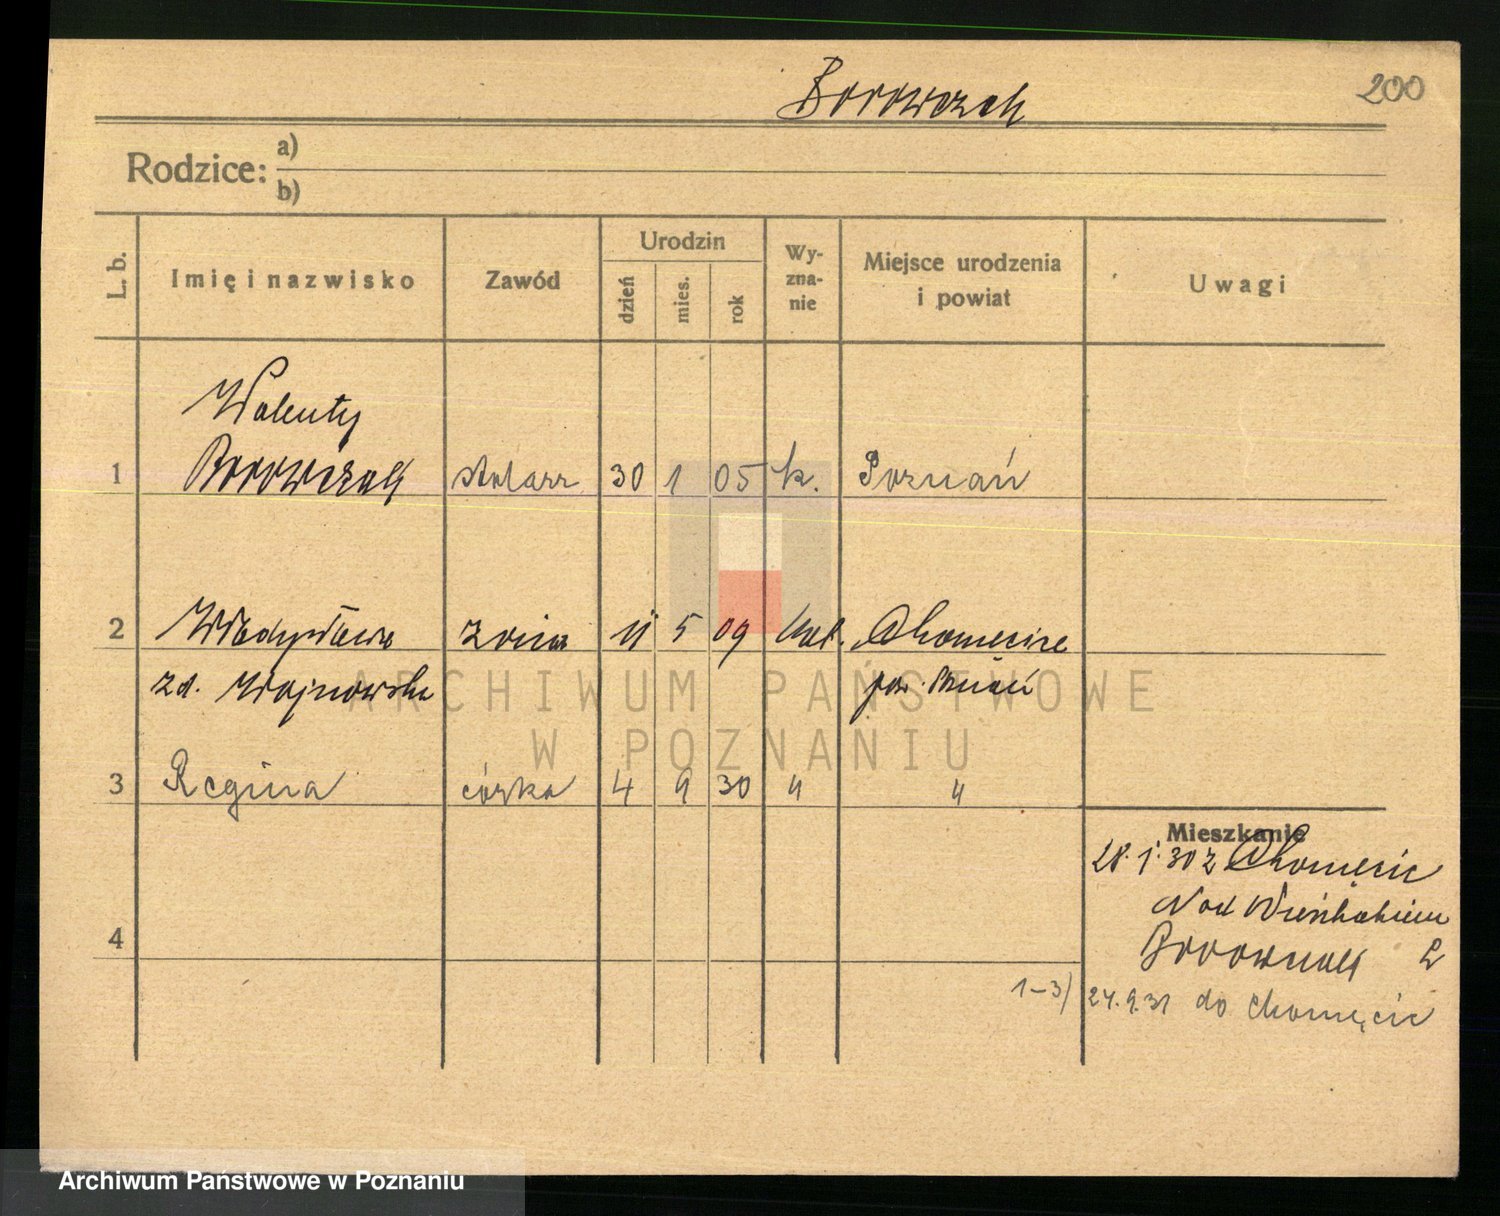 200
Borowczak
Rodzice:
a)
b)
L. b.
Imię i nazwisko
Zawód
Urodzin
dzień
mies.
rok
Wy-
zna-
nie
Miejsce urodzenia
i powiat
Uwagi
Walenty
1 Borowczak stolarz 30 1 05 k. Poznań
2 Władysława żona 11 5 09 kat. Chomęcice
zd. Wojnowska pow. Poznań
3 Regina córka 4 9 30 " "
Mieszkanie
28. 1. 30 z Chomęcic
Nad Wierzbakiem
4
Borowczak
1-3) 24.9.31 do Chomęcic
ARCHIWUM PAŃSTWOWE
W POZNANIU
Archiwum Państwowe w Poznaniu